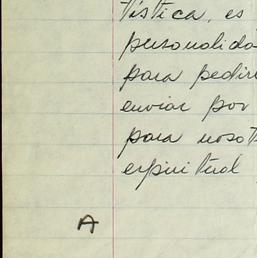 tística, es
personalida
para pedir
enviar por
para nosot
espiritual
A